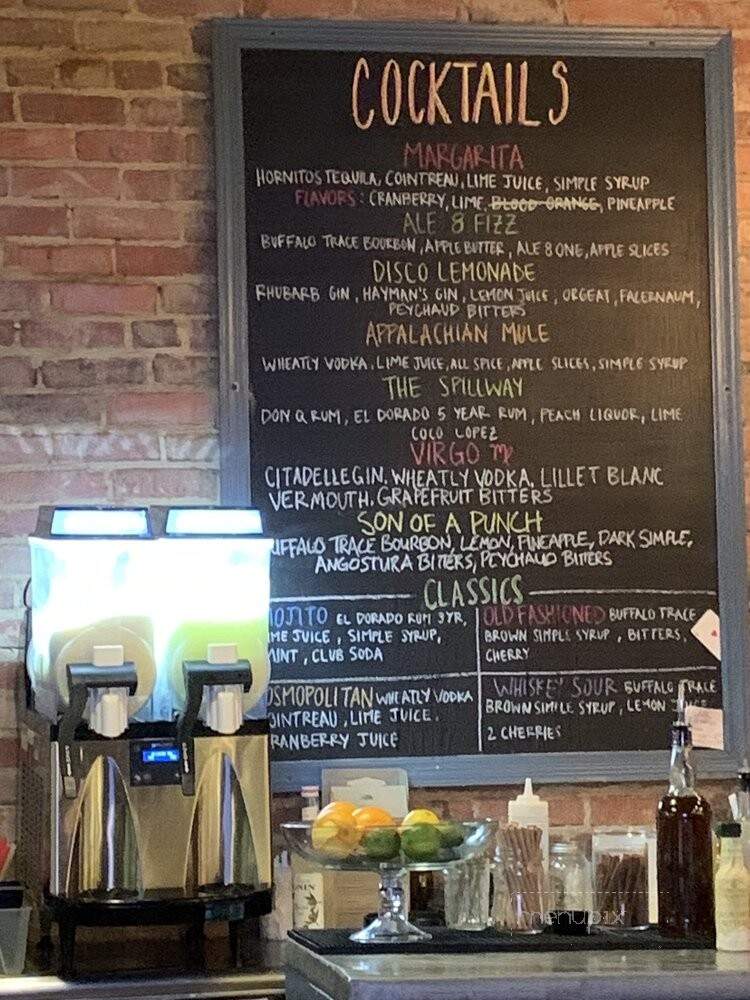 COCKTAILS
MARGARITA
HORNITOS TEQUILA, COINTREAU, LIME JUICE, SIMPLE SYRUP
FLAVORS: CRANBERRY, LIME, BLOOD ORANGE, PINEAPPLE
ALE 8 FIZZ
BUFFALO TRACE BOURBON, APPLE BUTTER, ALE 8 ONE, APPLE SLICES
DISCO LEMONADE
RHUBARB GIN, HAYMAN'S GIN, LEMON JUICE, ORGEAT, FALERNAUM,
PEYCHAUD BITTERS
APPALACHIAN MULE
WHEATLY VODKA, LIME JUICE, ALL SPICE, APPLE SLICES, SIMPLE SYRUP
THE SPILLWAY
DON Q RUM, EL DORADO 5 YEAR RUM, PEACH LIQUOR, LIME
COCO LOPEZ
VIRGO ♍
CITADELLE GIN, WHEATLY VODKA, LILLET BLANC
VERMOUTH, GRAPEFRUIT BITTERS
SON OF A PUNCH
UFFALO TRACE BOURBON, LEMON, PINEAPPLE, DARK SIMPLE,
ANGOSTURA BITERS, PEYCHAUD BITTERS
CLASSICS
MOJITO EL DORADO RUM 3YR,
IME JUICE, SIMPLE SYRUP,
MINT, CLUB SODA
OLD FASHIONED BUFFALO TRACE
BROWN SIMPLE SYRUP, BITTERS,
CHERRY
OSMOPOLITAN WHEATLY VODKA
OINTREAU, LIME JUICE,
RANBERRY JUICE
WHISKEY SOUR BUFFALO TRACE
BROWN SIMPLE SYRUP, LEMON
2 CHERRIES
menupix